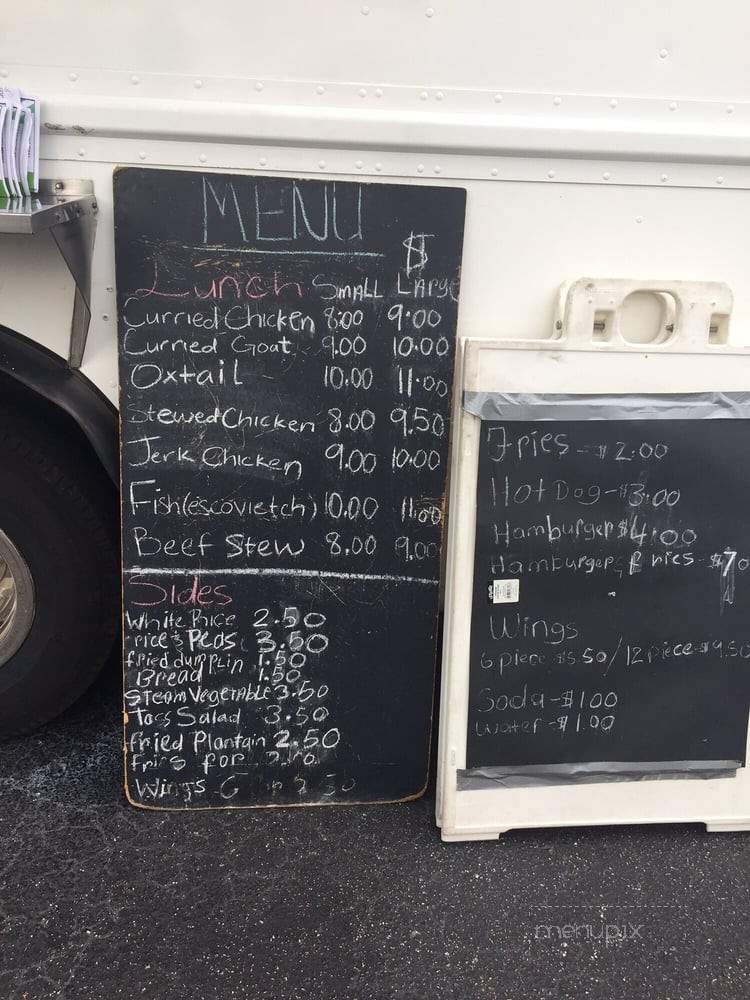 MENU
$
Lunch Small Large
Curried Chicken 8.00 9.00
Curried Goat 9.00 10.00
Oxtail 10.00 11.00
Stewed Chicken 8.00 9.50
Jerk Chicken 9.00 10.00
Fish(escovietch) 10.00 11.00
Beef Stew 8.00 9.00
Sides
White Rice 2.50
rice & Peas 3.50
fried dumplin 1.50
Bread 1.50
Steam Vegetable 3.50
Toss Salad 3.50
fried Plantain 2.50
fries for
Wings 6
Fries - $2.00
Hot Dog - $3.00
Hamburger $4.00
Hamburger & Fries - $7.0
Wings
6 piece $5.50 / 12 piece - $9.50
Soda - $1.00
Water - $1.00
menupix